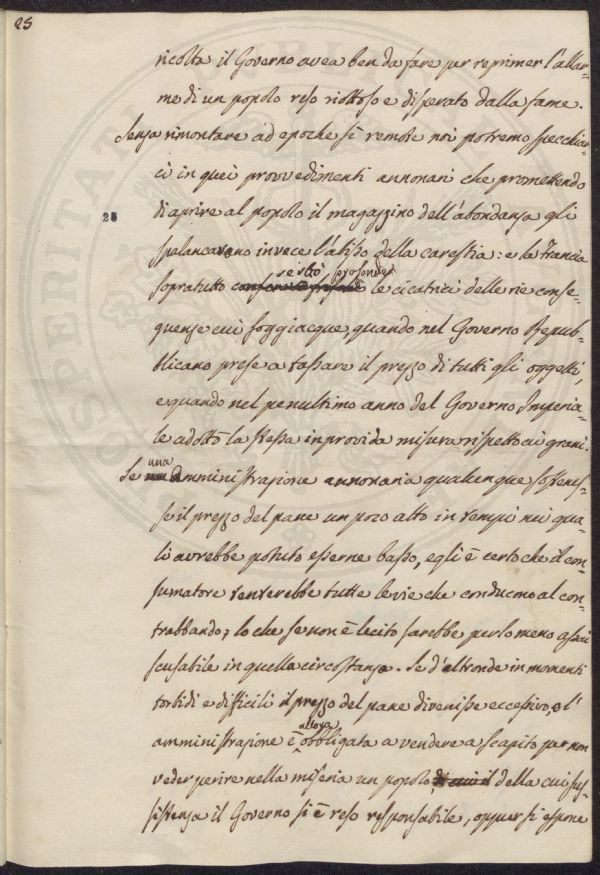 25
ricolta il Governo avea ben da fare per reprimer l'allar=
me di un popolo reso riottoso e disperato dalla fame.
Senza rimontare ad epoche sì remote noi potremo specchiar=
ci in quei provvedimenti annonarj che promettendo
25
di aprire al popolo il magazzino dell'abondanza gli
spalancarono invece l'abisso della carestia: e la Francia
serbò profonde
sopratutto le cicatrici delle rie conse=
guenze cui soggiacque, quando nel Governo Repub=
blicano prese a tassare il prezzo di tutti gli oggetti,
e quando nel penultimo anno del Governo Imperia=
le adottò la stessa improvida misura rispetto ai grani.
una
Se Amministrazione annonaria qualunque sostenes=
se il prezzo del pane un poco alto in tempi nei qua=
li avrebbe potuto esserne basso, egli è certo che il con=
sumatore tenterebbe tutte le vie che conducono al con=
trabbando; lo che se non è lecito sarebbe per lo meno assai
scusabile in quella circostanza. Se d'altronde in momenti
torbidi e difficili il prezzo del pane divenisse eccessivo, o l'
allora
amministrazione è obbligata a vendere a scapito per non
veder perire nella miseria un popolo, della cui sus=
sistenza il Governo si è reso responsabile, oppur si espone